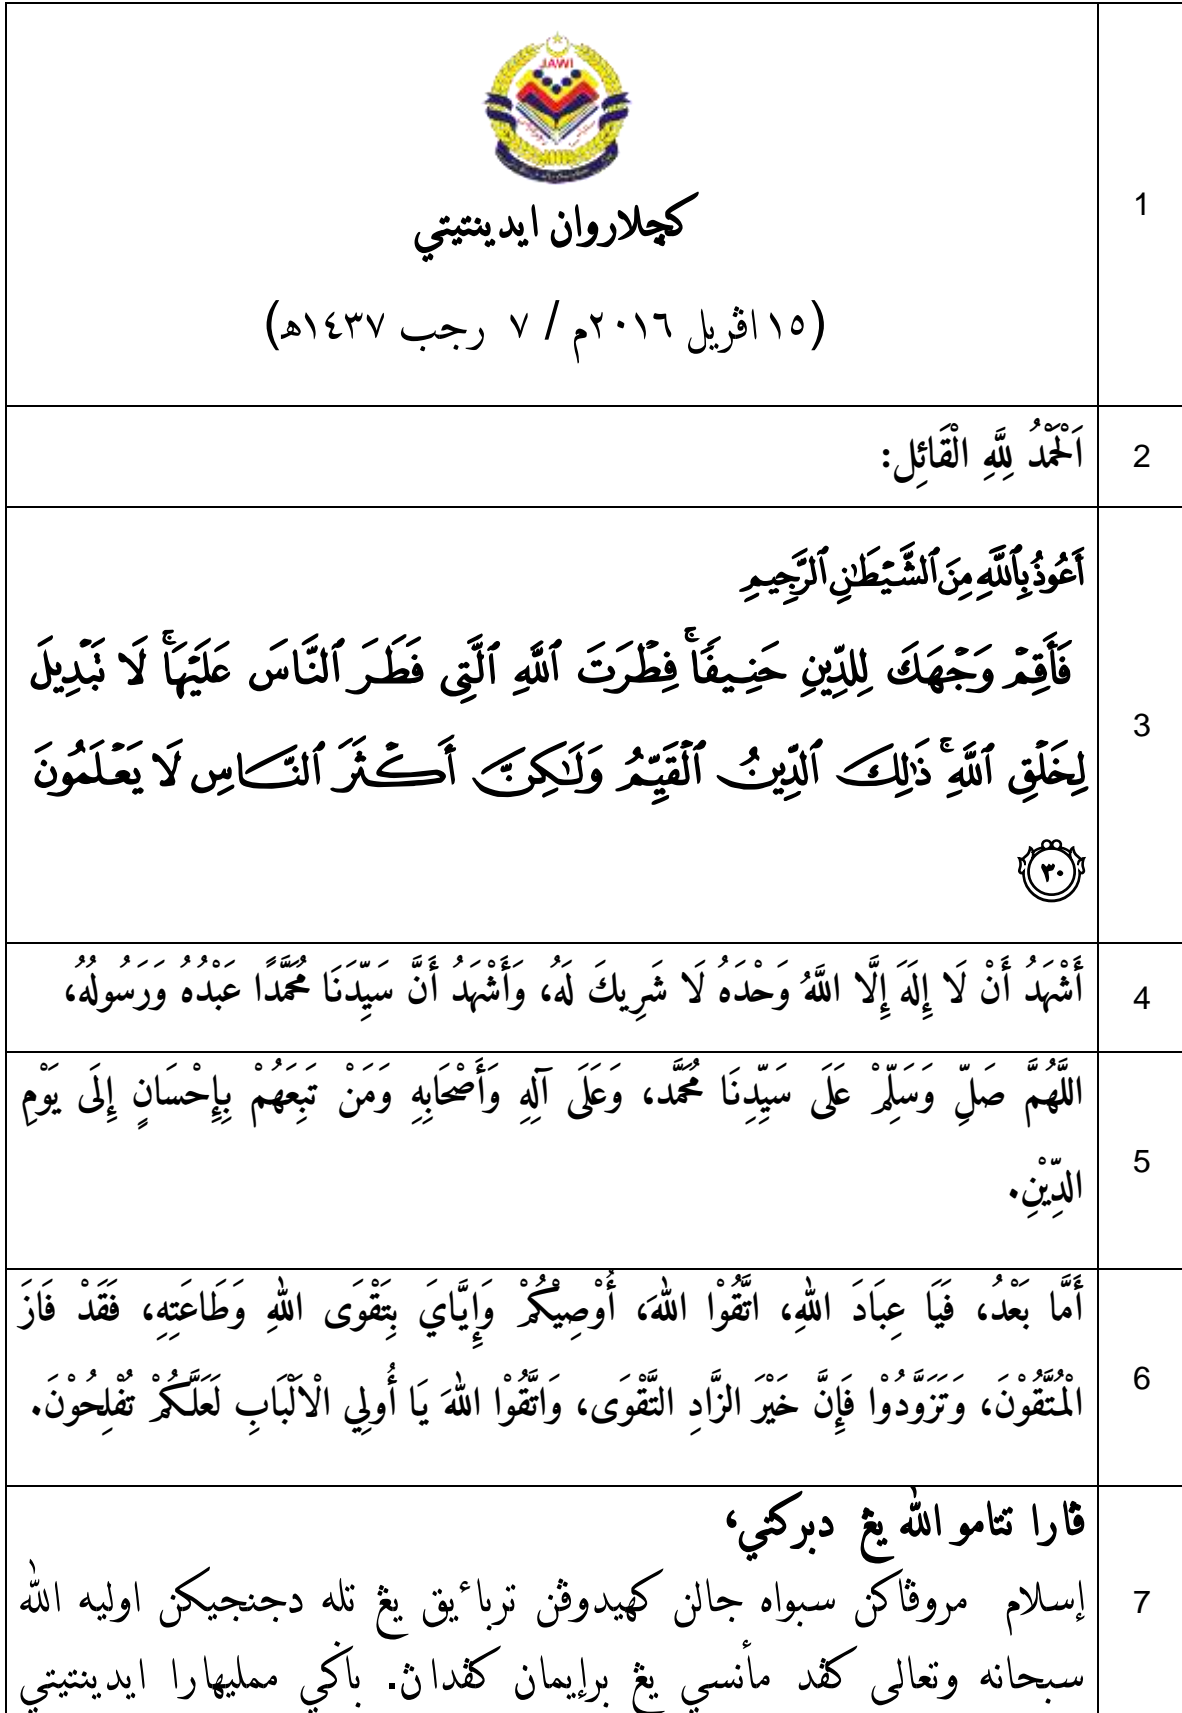 JAWI
كچلاروان ايدينتيتي
(١٥ اڤريل ٢٠١٦م / ٧ رجب ١٤٣٧ه)
1
اَلْحَمْدُ لِلَّهِ الْقَائِل:
2
أَعُوذُ بِٱللَّهِ مِنَ ٱلشَّيْطَٰنِ ٱلرَّجِيمِ
فَأَقِمْ وَجْهَكَ لِلدِّينِ حَنِيفًا ۚ فِطْرَتَ ٱللَّهِ ٱلَّتِي فَطَرَ ٱلنَّاسَ عَلَيْهَا ۚ لَا تَبْدِيلَ
لِخَلْقِ ٱللَّهِ ۚ ذَٰلِكَ ٱلدِّينُ ٱلْقَيِّمُ وَلَٰكِنَّ أَكْثَرَ ٱلنَّاسِ لَا يَعْلَمُونَ
٣٠
3
أَشْهَدُ أَنْ لَا إِلَهَ إِلَّا اللَّهُ وَحْدَهُ لَا شَرِيكَ لَهُ، وَأَشْهَدُ أَنَّ سَيِّدَنَا مُحَمَّدًا عَبْدُهُ وَرَسُولُهُ،
4
اللَّهُمَّ صَلِّ وَسَلِّمْ عَلَى سَيِّدِنَا مُحَمَّد، وَعَلَى آلِهِ وَأَصْحَابِهِ وَمَنْ تَبِعَهُمْ بِإِحْسَانٍ إِلَى يَوْمِ
الدِّيْنِ.
5
أَمَّا بَعْدُ، فَيَا عِبَادَ اللهِ، اتَّقُوْا اللهَ، أُوْصِيْكُمْ وَإِيَّايَ بِتَقْوَى اللهِ وَطَاعَتِهِ، فَقَدْ فَازَ
الْمُتَّقُوْنَ، وَتَزَوَّدُوْا فَإِنَّ خَيْرَ الزَّادِ التَّقْوَى، وَاتَّقُوْا اللهَ يَا أُولِي الْاَلْبَابِ لَعَلَّكُمْ تُفْلِحُوْنَ.
6
ڤارا تتامو الله يڠ دبركتي،
إسلام مروڤاكن سبواه جالن كهيدوڤن تربا ٔيق يڠ تله دجنجيكن اوليه الله
سبحانه وتعالى كڤد مأنسي يڠ برإيمان كڤداڽ. باݢي ممليهارا ايدينتيتي
7